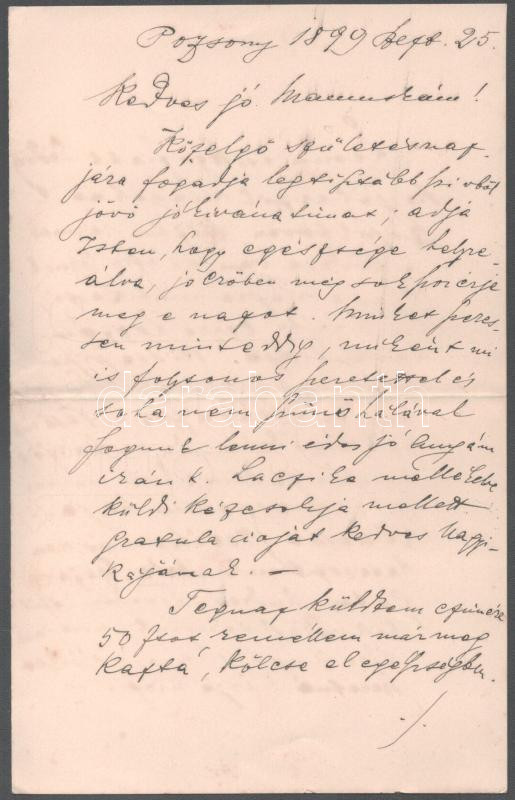 Pozsony 1899 Sept. 25.
Kedves jó Mamuskám!
Közelgő születésnap-
jára fogadja legtisztább szivből
jövő jókivánatimat; adja
Isten, hogy egészsége helyre-
álva, jó erőben még sokszor érje
meg e napot. Minket szeres-
sen mint eddig, miként mi
is folytonos szeretettel és
soha nem szünő hálával
fogunk lenni édes jó Anyám
iránt. Laczika mellékelve
küldi kézcsókja mellett
gratulacioját kedves Nagyi-
kájának. —
Tegnap küldtem czimére
50 ftot remélem már meg
kapta, költse el egészségben.
./.
darabanth